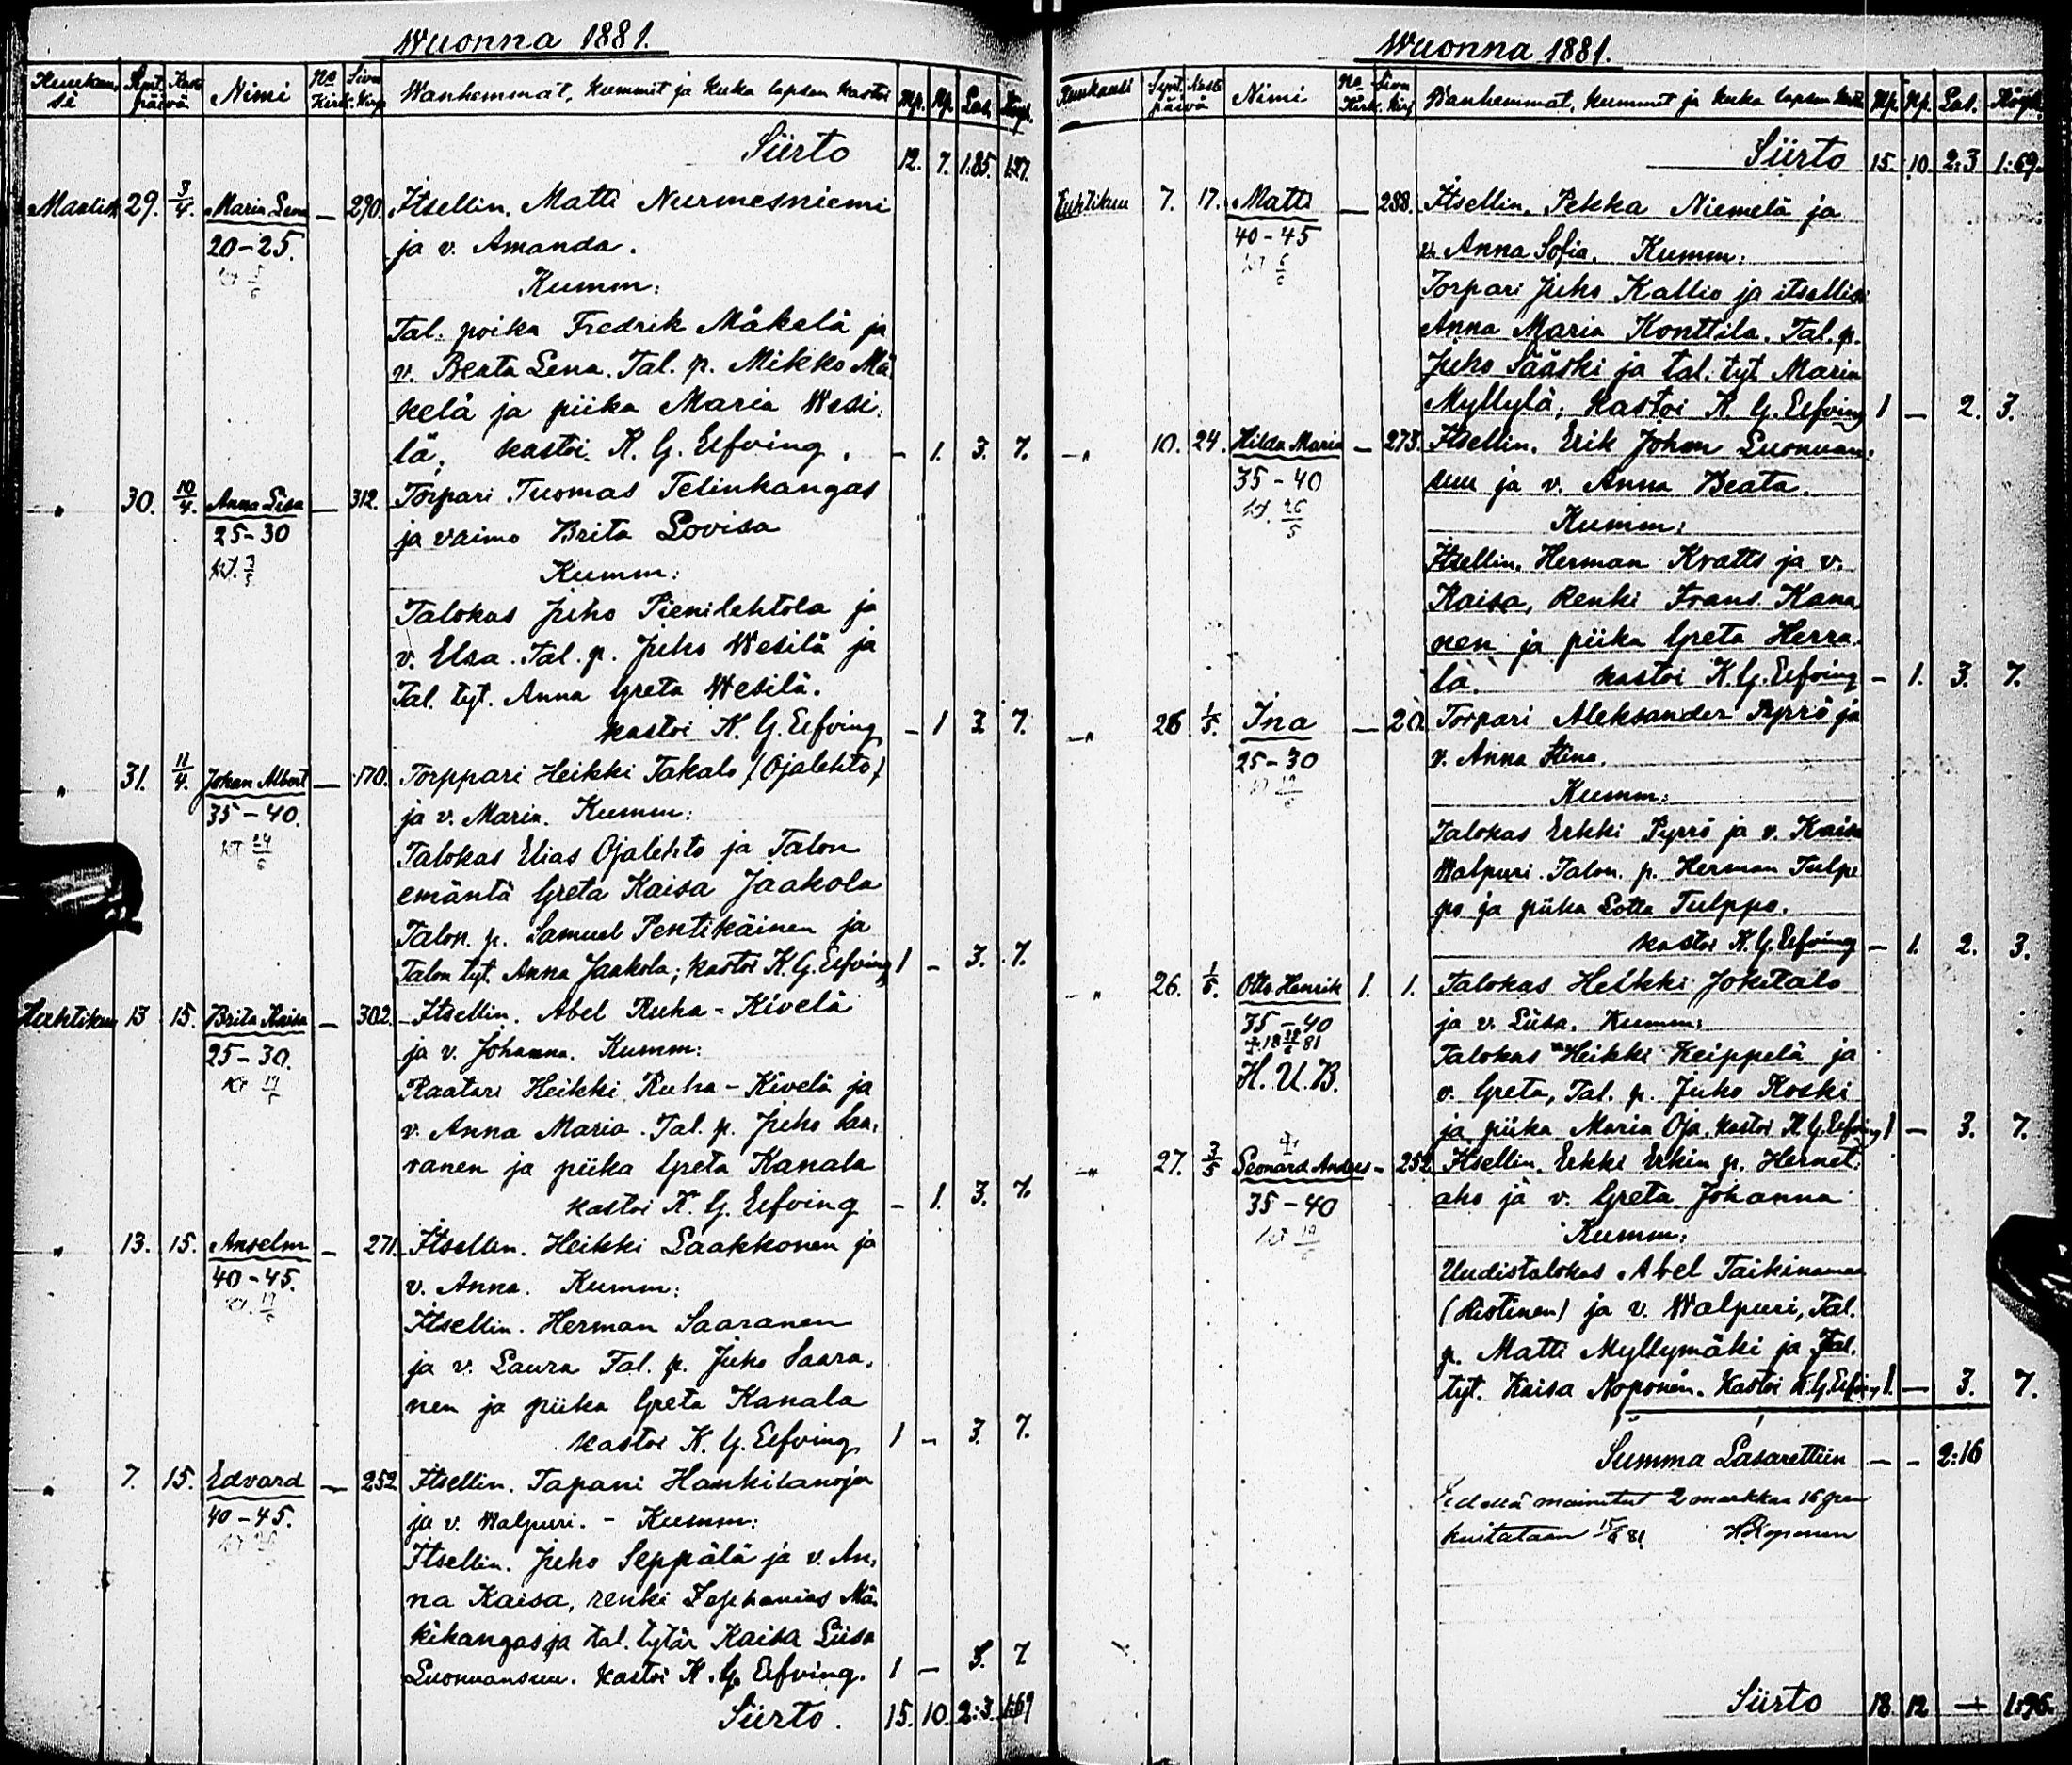 Wuonna 1881.
Kuukausi Synt. Kaste päivä Nimi No Kirk. Sivu Kirj. Wanhemmat, kummit ja kuka lapsen kastoi Mp. Np. Las. Köyh.
Siirto 12. 7. 1.85. 1.27.
Maalisk 29. 3/4. Maria Lena — 290. Itsellin. Matti Nurmesniemi
20-25. ja v. Amanda.
Kumm:
Tal. poika Fredrik Mäkelä ja
v. Beata Lena. Tal. p. Mikko Mä-
kelä ja piika Maria Wesi-
lä; kastoi K. G. Elfving. - 1. 3. 7.
" 30. 10/4. Anna Lisa — 312. Torpari Tuomas Telinkangas
25-30 ja vaimo Brita Lovisa
Kumm:
Talokas Juho Pienilehtola ja
v. Elsa. Tal. p. Juho Wesilä ja
Tal. tyt. Anna Greta Wesilä.
kastoi K. G. Elfving - 1 3 7.
" 31. 11/4. Johan Albert — 170. Torppari Heikki Takalo (Ojalehto)
35-40. ja v. Maria. Kumm:
Talokas Elias Ojalehto ja Talon
emäntä Greta Kaisa Jaakola
Talon. p. Samuel Pentikäinen ja
Talon tyt. Anna Jaakola; kastoi K. G. Elfving 1 - 3. 7.
Huhtikuu 13 15. Brita Kaisa — 302. Itsellin. Abel Ruha-Kivelä
25-30. ja v. Johanna. Kumm:
Raatari Heikki Ruha-Kivelä ja
v. Anna Maria. Tal. p. Juho Saa-
ranen ja piika Greta Kanala
kastoi K. G. Elfving - 1. 3. 7.
" 13. 15. Anselm — 271. Itsellin. Heikki Laakkonen ja
40-45. v. Anna. Kumm:
Itsellin. Herman Saaranen
ja v. Laura Tal. p. Juho Saara-
nen ja piika Greta Kanala
kastoi K. G. Elfving 1 - 3. 7.
" 7. 15. Edvard — 252 Itsellin. Tapani Hankilanoja
40-45. ja v. Walpuri. - Kumm:
Itsellin. Juho Seppälä ja v. An-
na Kaisa, renki Zephanias Mä-
kikangas ja tal. tytär Kaisa Liisa
Luonuansuu. kastoi K. G. Elfving. 1 — 3. 7
Siirto. 15. 10. 2:3. 1:69
Wuonna 1881.
Kuukausi Synt. Kaste päivä Nimi No Kirk. Sivu Kirj. Wanhemmat, kummit ja kuka lapsen kastoi Mp. Np. Las. Köyh.
Siirto 15. 10. 2:3 1:69.
Huhtikuu 7. 17. Matti — 288. Itsellin. Pekka Niemelä ja
40-45 v. Anna Sofia. Kumm:
Torpari Juho Kallio ja itsellisn
Anna Maria Konttila. Tal. p.
Juho Sääski ja tal. tyt. Maria
Myllylä; kastoi K. G. Elfving 1 — 2. 3.
" 10. 24. Hilda Maria — 273. Itsellin. Erik Johan Luonuan-
35-40 suu ja v. Anna Beata.
Kt. 26/5 Kumm:
Itsellin. Herman Kratts ja v.
Kaisa, Renki Frans Kana-
nen ja piika Greta Herra-
la. kastoi K. G. Elfving - 1. 3. 7.
" 26 1/5. Ina — 20. Torpari Aleksander Pyrrö ja
25-30 v. Anna Stina.
Kumm:
Talokas Erkki Pyrrö ja v. Kaisa
Walpuri. Talon. p. Herman Tulp-
po ja piika Lotta Tulppo.
kastoi K. G. Elfving — 1. 2. 3.
" 26. 1/5. Otto Henrik 1. 1. Talokas Heikki Jokitalo
35-40 ja v. Liisa. Kumm:
Talokas Heikki Keippelä ja
H. U. B. v. Greta, Tal. p. Juho Koski
ja piika Maria Oja. kastoi K. G. Elfving 1 — 3. 7.
" 27. 3/5 Leonard Anders - 252. Itsellin. Erkki Erkin p. Hernet-
35-40 aho ja v. Greta Johanna
Kumm:
Uudistalokas Abel Taikinamaa
(Ristinen) ja v. Walpuri, Tal.
p. Matti Myllymäki ja Tal.
tyt. Kaisa Noponen. Kastoi K. G. Elfving 1. — 3. 7.
Summa Lasarettiin — - 2:16
Edellä mainitut 2 markkaa 16 pen
kuitataan 15/6 81
Siirto 18. 12 — 1:96.